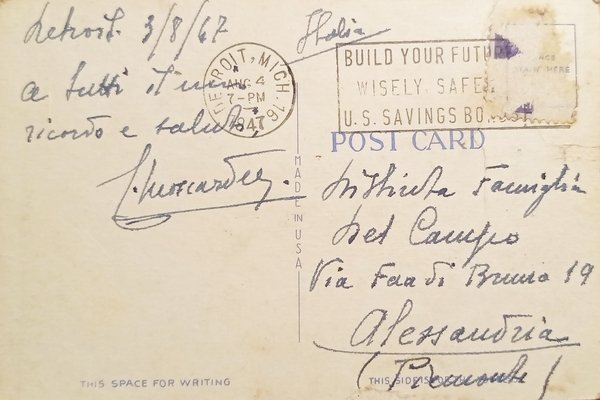 Detroit. 3/8/47
Italia
a tutti il mio
ricordo e saluti,
DETROIT, MICH. 16
AUG 4
7-PM
1947
BUILD YOUR FUTURE
WISELY, SAFELY
U.S. SAVINGS BONDS
HERE
POST CARD
MADE IN USA
Distinta Famiglia
Del Campo
Via Faa di Bruno 19
Alessandria
(Piemonte)
THIS SPACE FOR WRITING
THIS SIDE IS